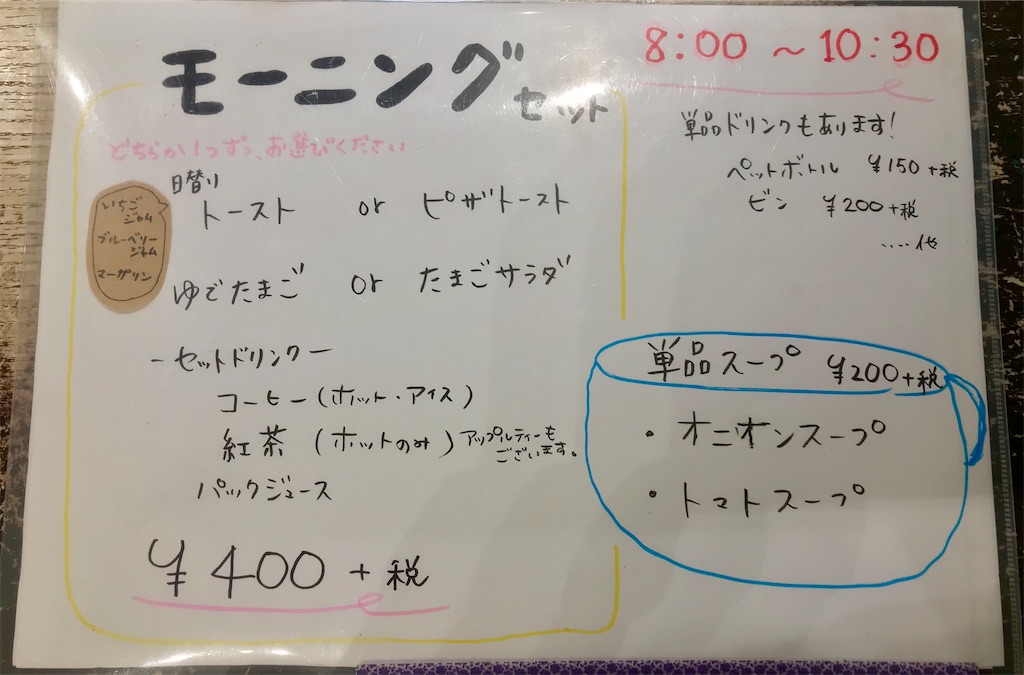 モーニング
セット
8:00 ～ 10:30
どちらか1つずつ、お選びください
日替り
いちご
ジャム
ブルーベリー
ジャム
マーガリン
トースト or ピザトースト
ゆでたまご or たまごサラダ
ーセットドリンクー
コーヒー (ホット・アイス)
紅茶 (ホットのみ) アップルティーも
ございます。
パックジュース
¥400 + 税
単品ドリンクもあります!
ペットボトル ¥150 +税
ビン ¥200 +税
.....他
単品スープ ¥200 +税
・オニオンスープ
・トマトスープ